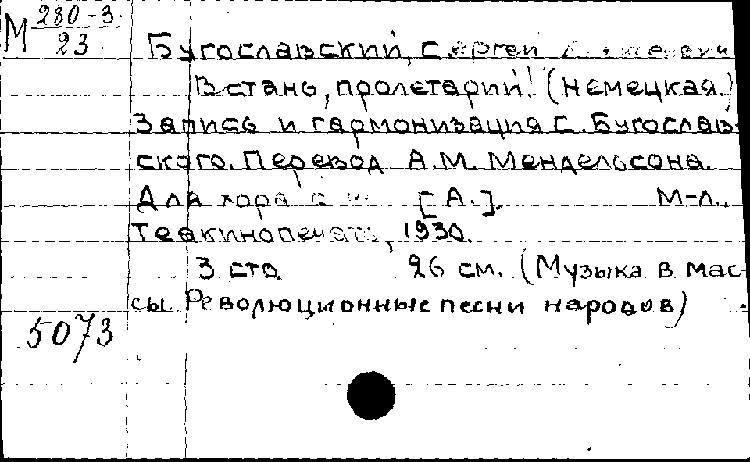 М 280-3
23
Бугославский, Сергей
Встань, пролетарий! (Немецкая.)
Запись и гармонизация С. Бугослав-
ского. Перевод А.М. Мендельсона.
Для хора [А.]. М-Л.,
Теакинопечать, 1930.
3 стр 26 см. (Музыка в мас-
сы. Революционные песни народов)
5073